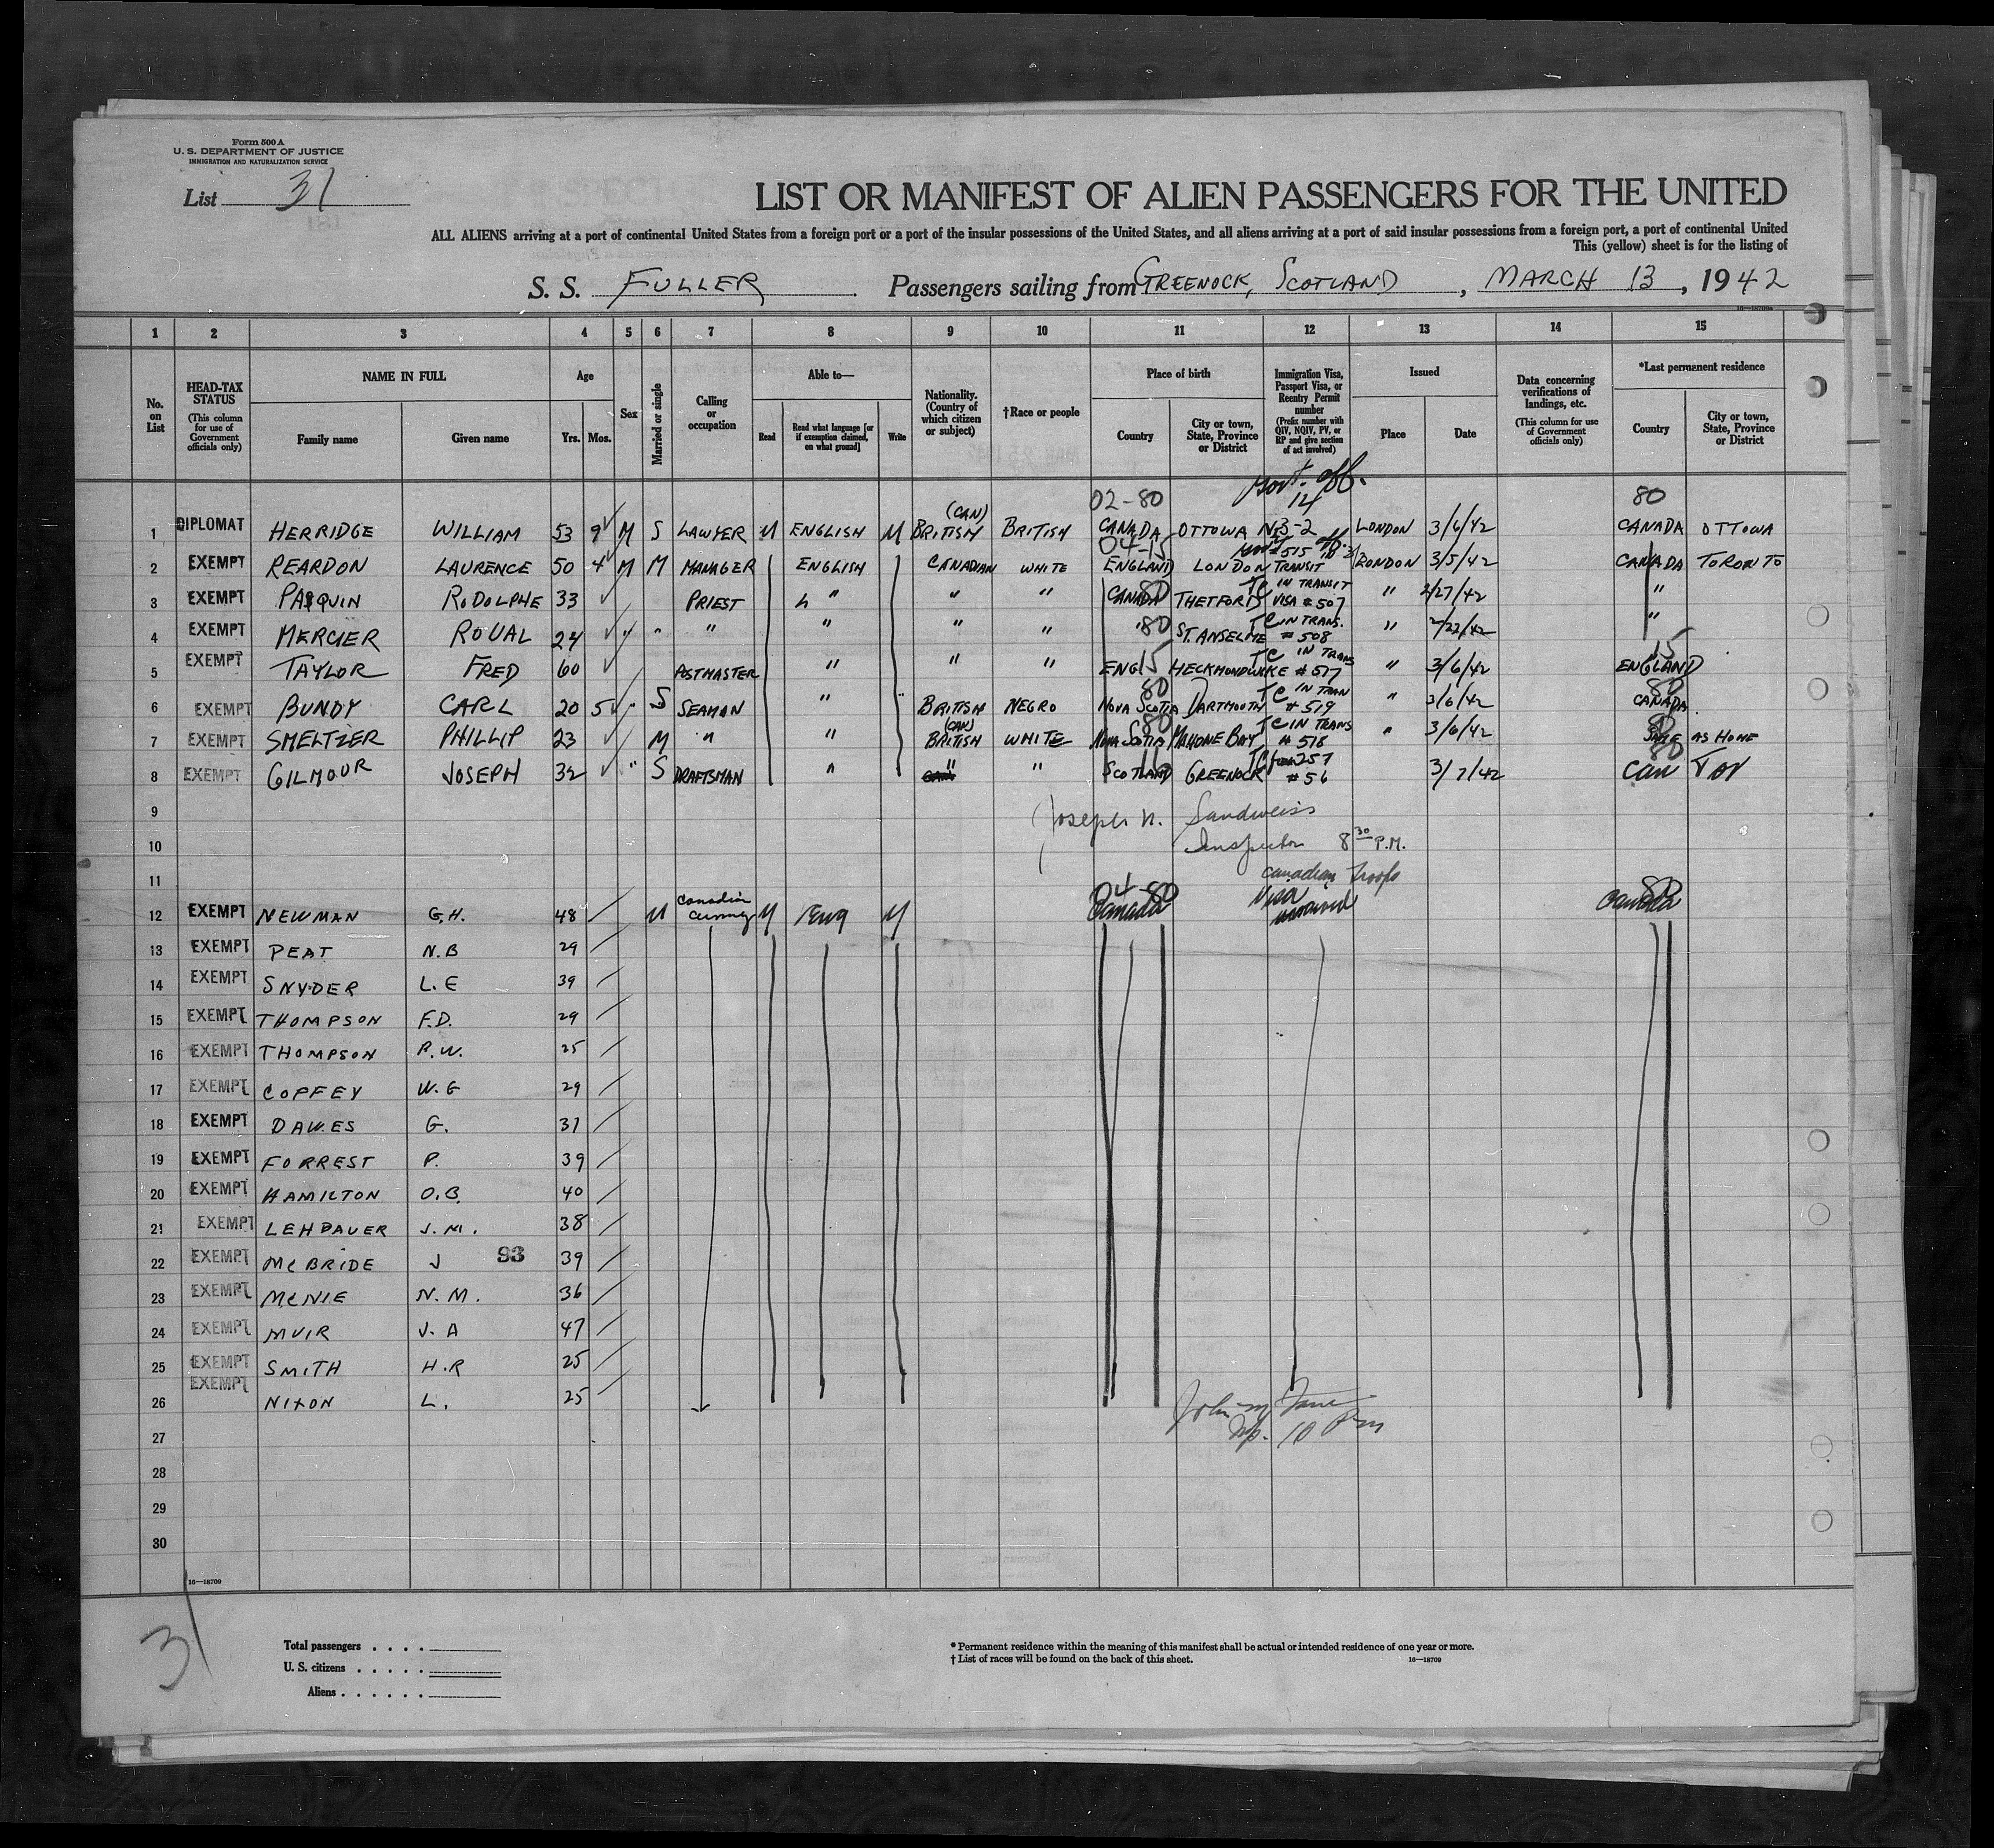 Form 500 A
U. S. DEPARTMENT OF JUSTICE
IMMIGRATION AND NATURALIZATION SERVICE
List 31
LIST OR MANIFEST OF ALIEN PASSENGERS FOR THE UNITED
ALL ALIENS arriving at a port of continental United States from a foreign port or a port of the insular possessions of the United States, and all aliens arriving at a port of said insular possessions from a foreign port, a port of continental United
This (yellow) sheet is for the listing of
S. S. FULLER Passengers sailing from GREENOCK, SCOTLAND, MARCH 13, 1942
1 2 3 4 5 6 7 8 9 10 11 12 13 14 15
No. on List
HEAD-TAX STATUS (This column for use of Government officials only)
NAME IN FULL
Family name Given name
Age
Yrs. Mos.
Sex
Married or single
Calling or occupation
Able to—
Read Read what language [or if exemption claimed, on what ground] Write
Nationality. (Country of which citizen or subject)
†Race or people
Place of birth
Country City or town, State, Province or District
Immigration Visa, Passport Visa, or Reentry Permit number (Prefix number with QIV, NQIV, PV, or RP and give section of act involved)
Issued
Place Date
Data concerning verifications of landings, etc. (This column for use of Government officials only)
*Last permanent residence
Country City or town, State, Province or District
02-80 Govt. off. 14 80
1 DIPLOMAT HERRIDGE WILLIAM 53 9 M S LAWYER ENGLISH (CAN) BRITISH BRITISH CANADA OTTOWA 3-2 LONDON 3/6/42 CANADA OTTOWA
04-15
2 EXEMPT REARDON LAURENCE 50 4 M M MANAGER ENGLISH CANADIAN WHITE ENGLAND LONDON #515 TRANSIT LONDON 3/5/42 CANADA TORONTO
3 EXEMPT PAQUIN RODOLPHE 33 PRIEST " " " CANADA 80 THETFORD TC IN TRANSIT VISA #507 " 2/27/42 "
4 EXEMPT MERCIER ROUAL 24 " " " " " " 80 ST. ANSELME TC IN TRANS. #508 " 2/22/42 "
5 EXEMPT TAYLOR FRED 60 POSTMASTER " " " ENG 15 HECKMONDWIKE TC IN TRANS #517 " 3/6/42 ENGLAND 15
6 EXEMPT BUNDY CARL 20 5 " S SEAMAN " BRITISH NEGRO NOVA SCOTIA 80 DARTMOUTH TC IN TRAN #519 " 3/6/42 CANADA 80
7 EXEMPT SMELTZER PHILLIP 23 M " " (CAN) BRITISH WHITE NOVA SCOTIA 80 MAHONE BAY TC IN TRANS #518 " 3/6/42 SAME AS HOME
8 EXEMPT GILMOUR JOSEPH 32 " S DRAFTSMAN " " " SCOTLAND GREENOCK 257 #56 3/7/42 80 Can Tor
9 Joseph N. Sandweiss
10 Inspector 8 30 P.M.
11 Canadian Troops
12 EXEMPT NEWMAN G.H. 48 M Canadian Eng 04-80 Canada Visa 80 Canada
13 EXEMPT PEAT N.B 29
14 EXEMPT SNYDER L.E 39
15 EXEMPT THOMPSON F.D. 29
16 EXEMPT THOMPSON R.W. 25
17 EXEMPT COFFEY W.G 29
18 EXEMPT DAWES G. 31
19 EXEMPT FORREST P. 39
20 EXEMPT HAMILTON O.B. 40
21 EXEMPT LEHBAUER J.M. 38
22 EXEMPT McBRIDE J 93 39
23 EXEMPT McNIE N.M. 36
24 EXEMPT MUIR J.A 47
25 EXEMPT SMITH H.R 25
26 EXEMPT NIXON L. 25
27
28
29
30
16—18709
31
Total passengers . . . .
U. S. citizens . . . . .
Aliens . . . . . .
* Permanent residence within the meaning of this manifest shall be actual or intended residence of one year or more.
† List of races will be found on the back of this sheet. 16—18709